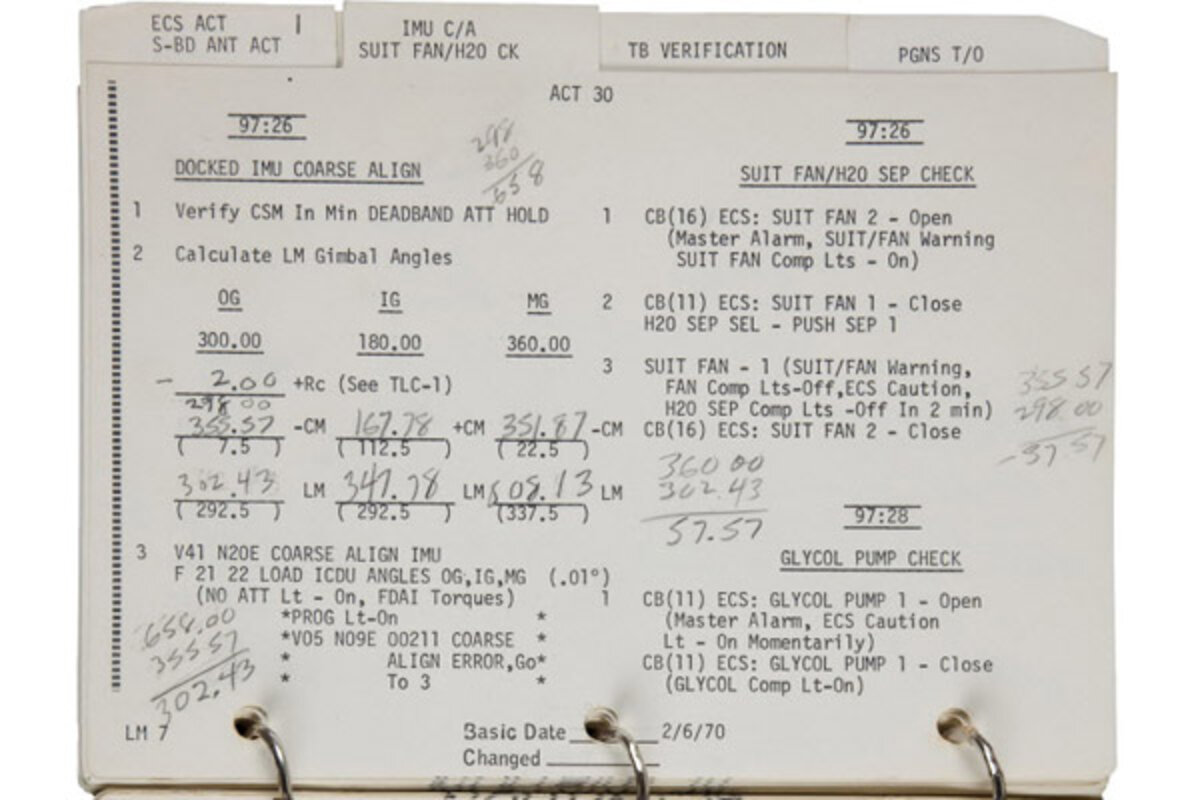 ECS ACT 1
S-BD ANT ACT
IMU C/A
SUIT FAN/H20 CK
TB VERIFICATION
PGNS T/O
ACT 30
97:26
298
360
658
DOCKED IMU COARSE ALIGN
1 Verify CSM In Min DEADBAND ATT HOLD
2 Calculate LM Gimbal Angles
OG IG MG
300.00 180.00 360.00
- 2.00 +Rc (See TLC-1)
298.00
355.57 -CM 167.78 +CM 351.87 -CM
( 7.5 ) ( 112.5 ) ( 22.5 )
302.43 LM 347.78 LM 008.13 LM
( 292.5 ) ( 292.5 ) (337.5 )
3 V41 N20E COARSE ALIGN IMU
F 21 22 LOAD ICDU ANGLES OG,IG,MG (.01°)
(NO ATT Lt - On, FDAI Torques)
*PROG Lt-On *
*V05 N09E 00211 COARSE *
* ALIGN ERROR,Go*
* To 3 *
658.00
355.57
302.43
97:26
SUIT FAN/H20 SEP CHECK
1 CB(16) ECS: SUIT FAN 2 - Open
(Master Alarm, SUIT/FAN Warning
SUIT FAN Comp Lts - On)
2 CB(11) ECS: SUIT FAN 1 - Close
H20 SEP SEL - PUSH SEP 1
3 SUIT FAN - 1 (SUIT/FAN Warning,
FAN Comp Lts-Off,ECS Caution,
H20 SEP Comp Lts -Off In 2 min)
CB(16) ECS: SUIT FAN 2 - Close
355 57
298.00
-57 57
360 00
302.43
57.57
97:28
GLYCOL PUMP CHECK
1 CB(11) ECS: GLYCOL PUMP 1 - Open
(Master Alarm, ECS Caution
Lt - On Momentarily)
CB(11) ECS: GLYCOL PUMP 1 - Close
(GLYCOL Comp Lt-On)
LM 7
Basic Date 2/6/70
Changed